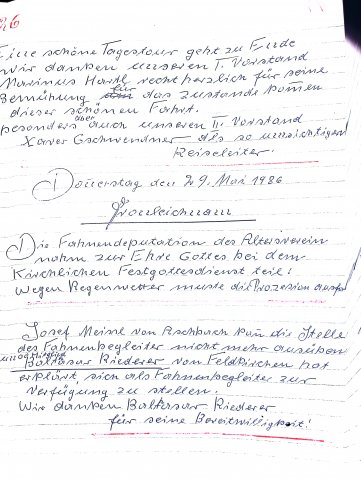 Eine schöne Tagestour geht zu Ende
wir danken unseren I. Vorstand
Marinus Hartl recht herzlich für seine
Bemühung für das zustande kommen
dieser schönen Fahrt.
besonders aber auch unseren II. Vorstand
Xaver Gschwendner als so umsichtigen
Reiseleiter.
Donerstag den 29. Mai 1986
Fronleichnam
Die Fahnendeputation des Altersverein
nahm zur Ehre Gottes bei dem
Kirchlichen Festgottesdienst teil!
Wegen Regenwetter muste die Prozesion
Josef Meisl von Aschbach kan die Stelle
des Fahnenbegleiter nicht mehr ausüben
Baltasar Riederer von Feldkirchen hat
erklärt, sich als Fahnenbegleiter zur
Verfügung zu stellen.
Wir danken Baltasar Riederer
für seine Bereitwilligkeit!